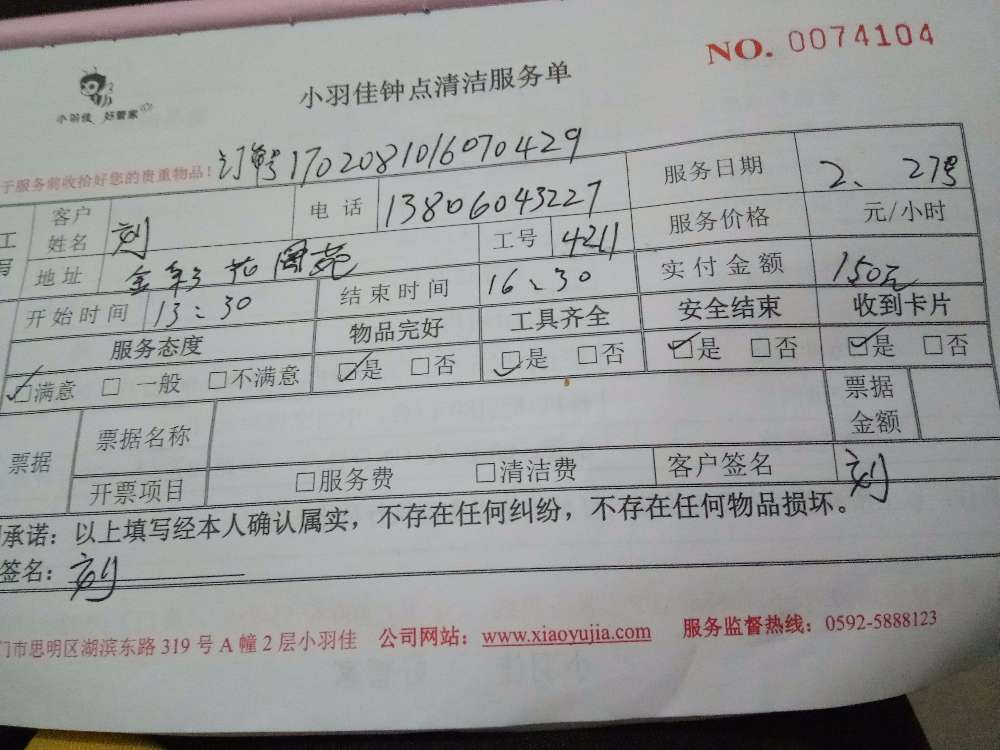 NO. 0074104
小羽佳 好管家
小羽佳钟点清洁服务单
于服务前收拾好您的贵重物品！ 订单号1702081016070429
客户姓名 刘 电话 13806043227 服务日期 2、27号
地址 金 花园苑 工号 4211 服务价格 元/小时
开始时间 13:30 结束时间 16:30 实付金额 150元
服务态度 物品完好 工具齐全 安全结束 收到卡片
☑满意 □一般 □不满意 ☑是 □否 ☑是 □否 ☑是 □否 ☑是 □否
票据 票据名称 票据金额
开票项目 □服务费 □清洁费 客户签名 刘
承诺：以上填写经本人确认属实，不存在任何纠纷，不存在任何物品损坏。
签名：刘
门市思明区湖滨东路 319 号 A 幢 2 层小羽佳 公司网站：www.xiaoyujia.com 服务监督热线：0592-5888123